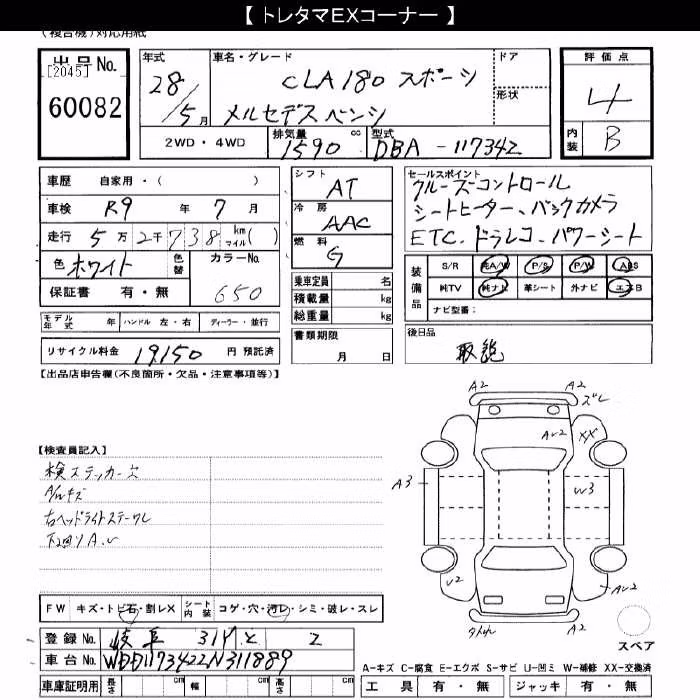 【 トレタマEXコーナー 】
(複合機)対応用紙
出品No.
[2045]
60082
年式 28/5月
車名・グレード CLA180 スポーツ
メルセデスベンツ
ドア
形状
2WD・4WD
排気量 1590 cc
型式 DBA-117342
評価点
4
内装 B
車歴 自家用・( )
車検 R9 年 7 月
走行 5万2千738 km マイル( )
色 ホワイト 色替 カラーNo. 650
保証書 有・無
シフト AT
冷房 AAC
燃料 G
乗車定員 名
積載量 kg
総重量 kg
セールスポイント
クルーズコントロール
シートヒーター、バックカメラ
ETC、ドラレコ、パワーシート
装備品 S/R 純A/W P/S P/W ABS
純TV 純ナビ 革シート 外ナビ エアB
ナビ型番:
モデル年式 年 ハンドル 左・右 ディーラー・並行
リサイクル料金 19150 円 預託済
書類期限
月 日
後日品
取説
【出品店申告欄(不良箇所・欠品・注意事項等)】
【検査員記入】
検ステッカー欠
A/Wキズ
右ヘッドライトステーワレ
下回りA、U
A2 A2
ズレ
AU2 XX
A3 W3
U2 AU2
A2
スペア
FW キズ・トビ石・割レX シート内装 コゲ・穴・汚レ・シミ・破レ・スレ
登録No. 岐阜 31 2
車台No. WDD1173422N311889
車庫証明用 長さ cm 幅 cm 高さ cm
A−キズ C−腐食 E−エクボ S−サビ U−凹ミ W−補修 XX−交換済
工具 有・無 ジャッキ 有・無